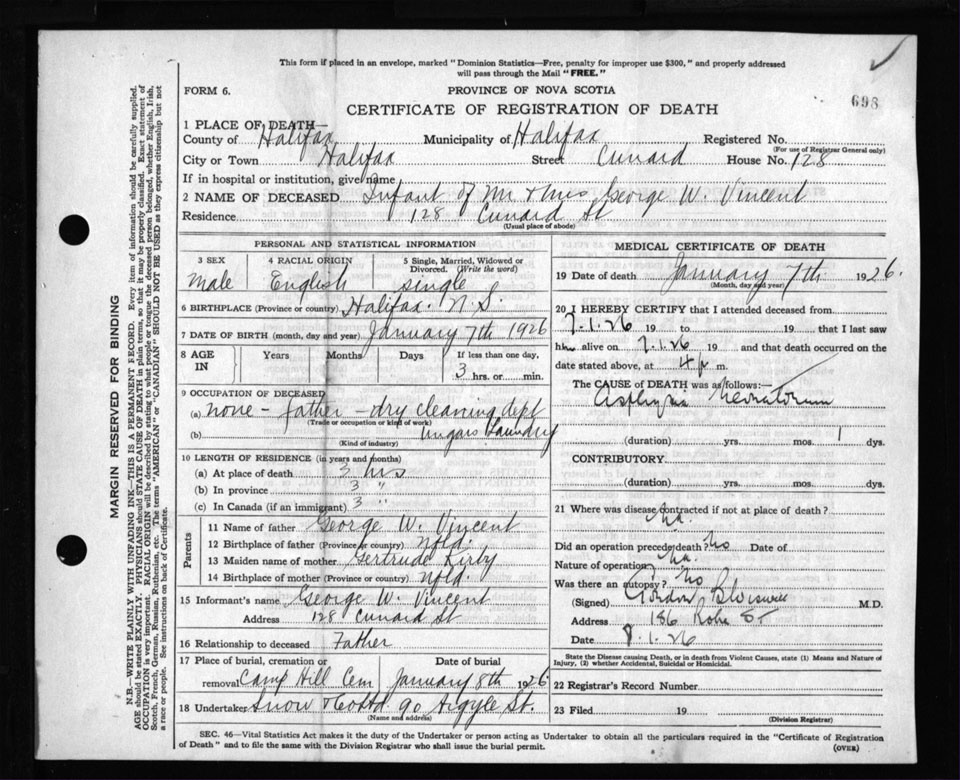 This form if placed in an envelope, marked "Dominion Statistics—Free, penalty for improper use $300," and properly addressed
will pass through the Mail "FREE."
FORM 6.
PROVINCE OF NOVA SCOTIA
698
CERTIFICATE OF REGISTRATION OF DEATH
1 PLACE OF DEATH—
County of Halifax Municipality of Halifax Registered No.
(For use of Registrar General only)
City or Town Halifax Street Cunard House No. 128
If in hospital or institution, give name
2 NAME OF DECEASED Infant of Mr & Mrs George W. Vincent
Residence 128 Cunard St
(Usual place of abode)
PERSONAL AND STATISTICAL INFORMATION
3 SEX
Male
4 RACIAL ORIGIN
English
5 Single, Married, Widowed or
Divorced. (Write the word)
single
6 BIRTHPLACE (Province or country) Halifax. N.S.
7 DATE OF BIRTH (month, day and year) January 7th 1926
8 AGE IN
Years Months Days
If less than one day,
3 hrs. or min.
9 OCCUPATION OF DECEASED
(a) none - father - dry cleaning dept
(Trade or occupation or kind of work)
(b) Ungars Laundry
(Kind of industry)
10 LENGTH OF RESIDENCE (in years and months)
(a) At place of death 3 hrs
(b) In province 3 "
(c) In Canada (if an immigrant) 3 "
Parents
11 Name of father George W. Vincent
12 Birthplace of father (Province or country) Nfld.
13 Maiden name of mother Gertrude Kirby
14 Birthplace of mother (Province or country) Nfld.
15 Informant's name George W. Vincent
Address 128 Cunard St
16 Relationship to deceased Father
17 Place of burial, cremation or
removal Camp Hill Cem
Date of burial
January 8th 1926
18 Undertaker Snow & Co Ltd 90 Argyle St.
(Name and address)
MEDICAL CERTIFICATE OF DEATH
19 Date of death January 7th 1926.
(Month, day and year)
20 I HEREBY CERTIFY that I attended deceased from
7.1.26 19 to 19 that I last saw
him alive on 7.1.26 19 and that death occurred on the
date stated above, at 4 p m.
The CAUSE OF DEATH was as follows:—
Asphyxia Neonatorum
(duration) yrs. mos. 1 dys.
CONTRIBUTORY
(duration) yrs. mos. dys.
21 Where was disease contracted if not at place of death?
Did an operation precede death? No Date of
Nature of operation
Was there an autopsy? No
(Signed) Gordon M.D.
Address 186 Robie St
Date 8.1.26
State the Disease causing Death, or in death from Violent Causes, state (1) Means and Nature of
Injury, (2) whether Accidental, Suicidal or Homicidal.
22 Registrar's Record Number
23 Filed 19
(Division Registrar)
SEC. 46—Vital Statistics Act makes it the duty of the Undertaker or person acting as Undertaker to obtain all the particulars required in the "Certificate of Registration
of Death" and to file the same with the Division Registrar who shall issue the burial permit.
(OVER)
MARGIN RESERVED FOR BINDING
N.B.—WRITE PLAINLY WITH UNFADING INK—THIS IS A PERMANENT RECORD. Every item of information should be carefully supplied.
AGE should be stated EXACTLY. PHYSICIANS should STATE CAUSE OF DEATH in plain terms, so that it may be properly classified. Exact statement of
OCCUPATION is very important. RACIAL ORIGIN will be described by stating to what people or tongue the deceased person belonged, whether English, Irish,
Scotch, French, German, Russian, Ruthenian, etc. The terms "AMERICAN" or "CANADIAN" SHOULD NOT BE USED as they express citizenship but not
a race or people. See instructions on back of Certificate.